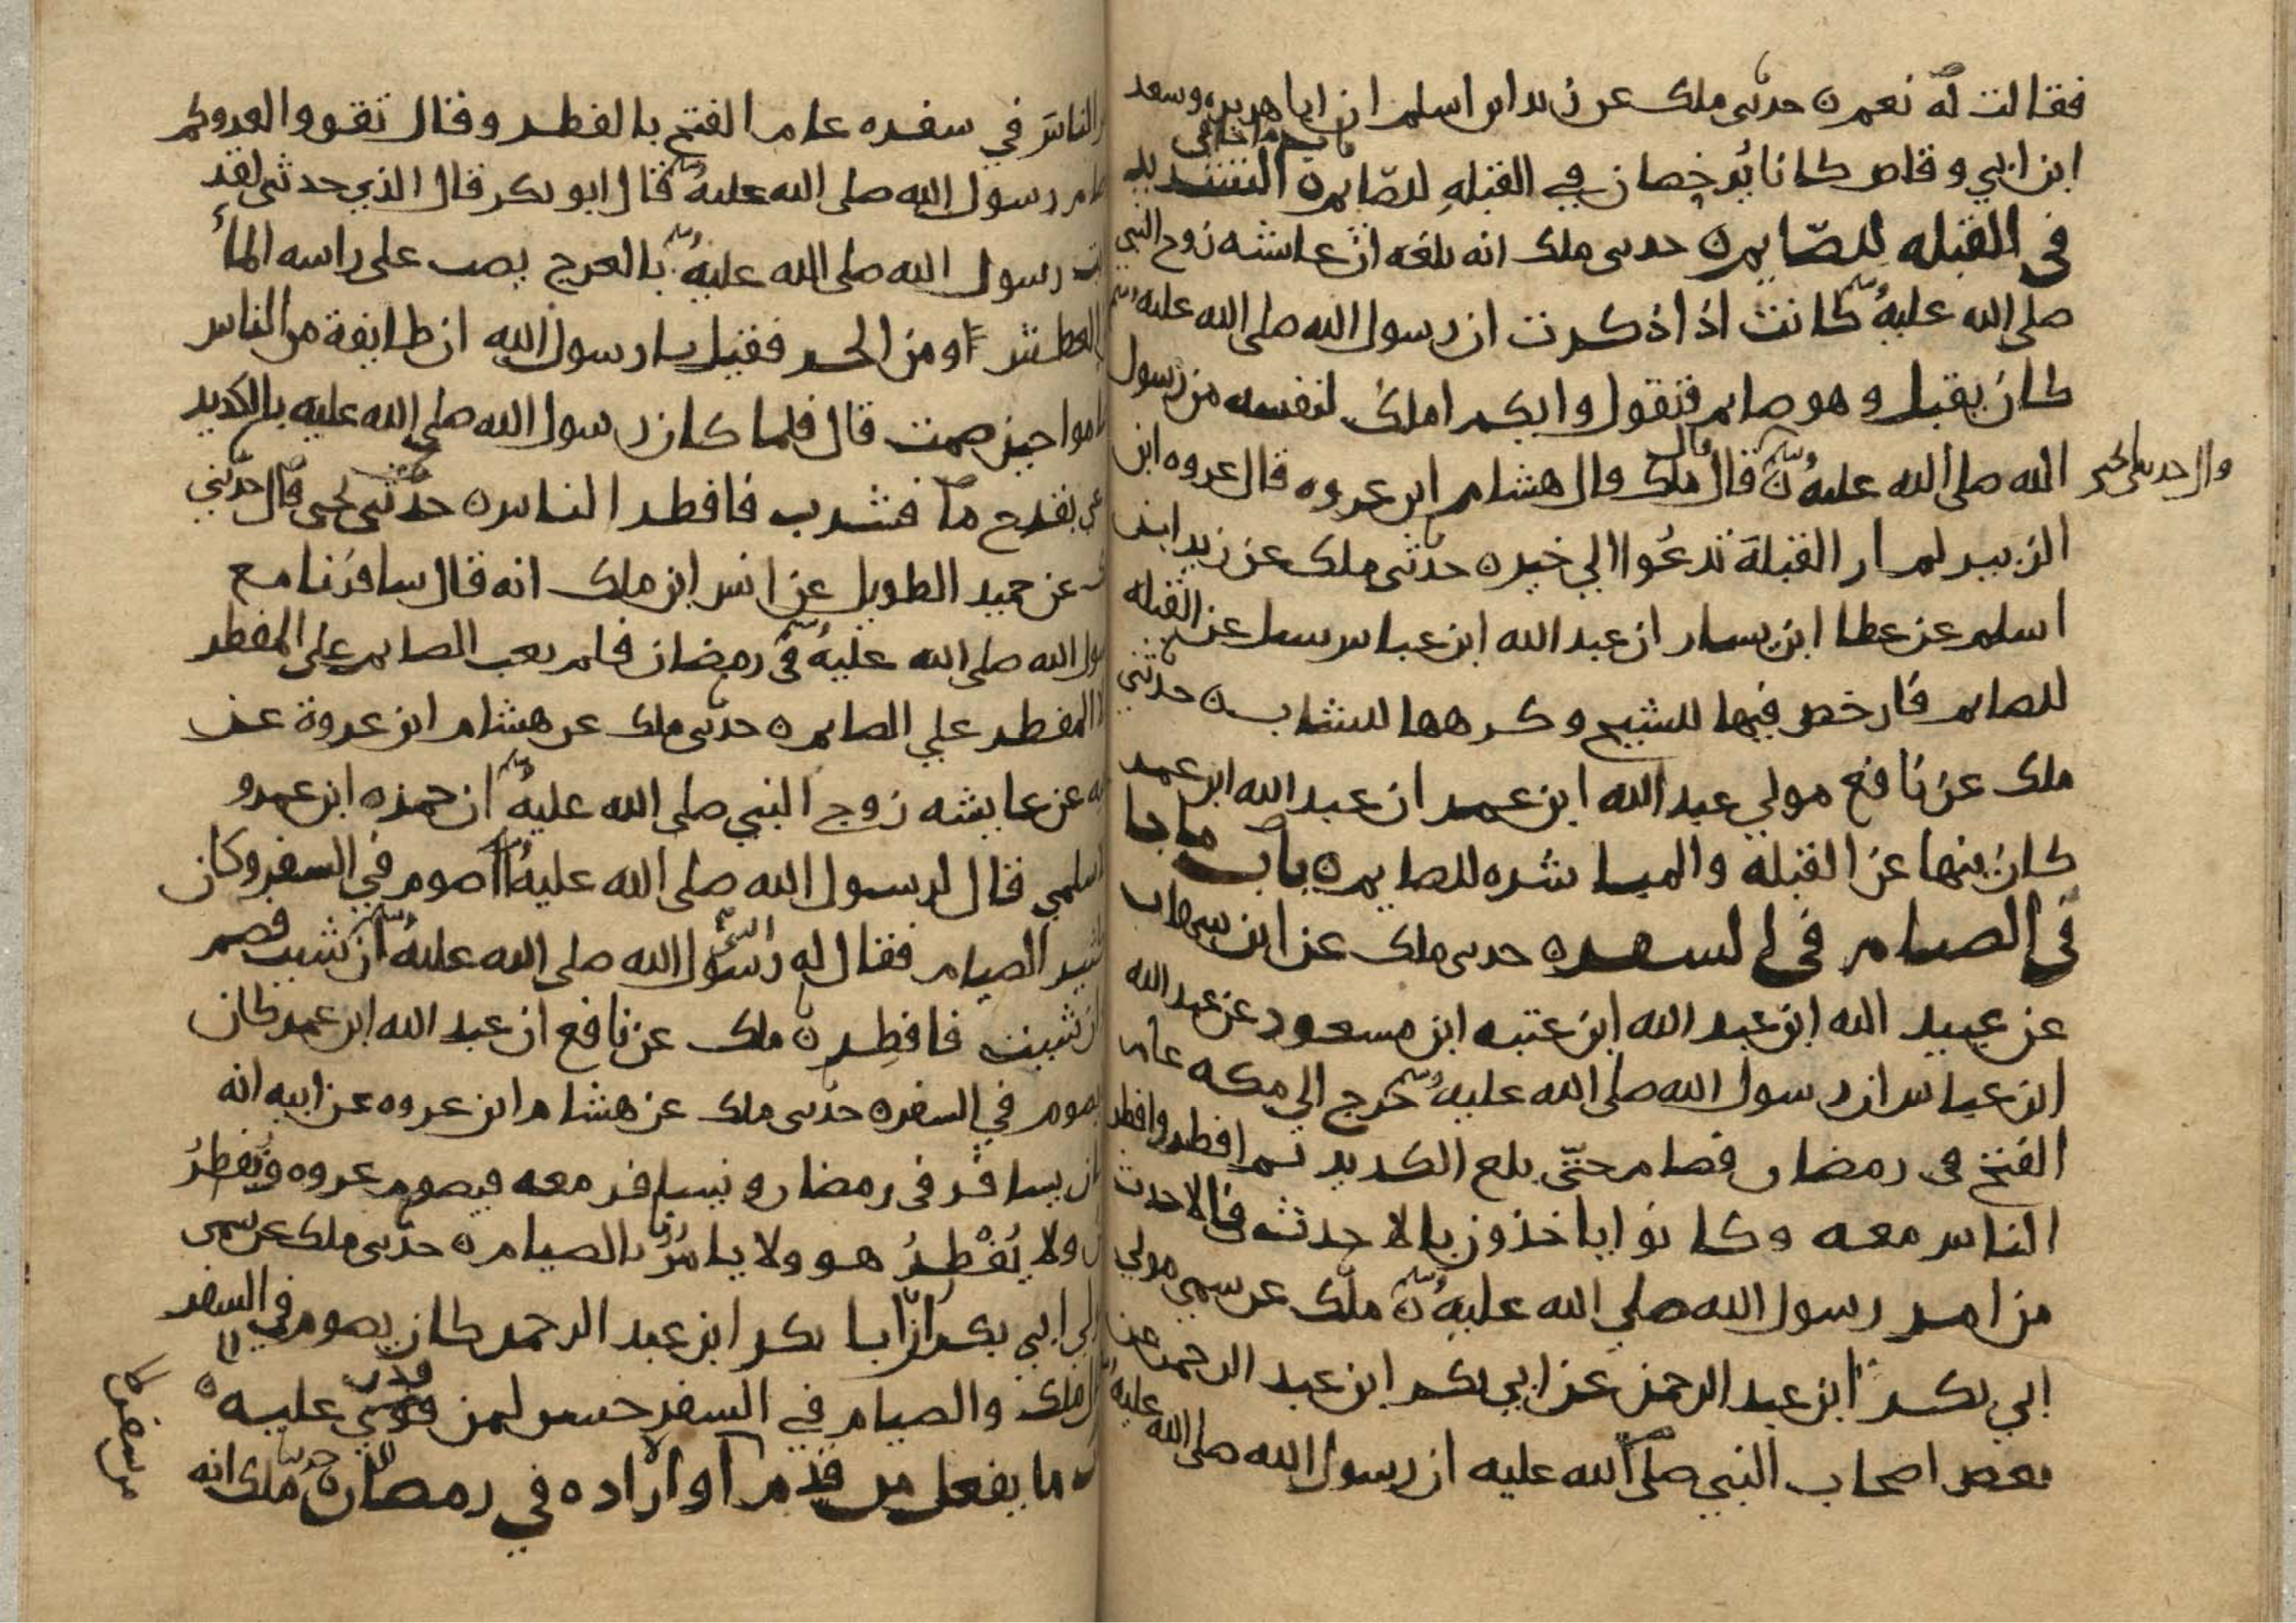 فقالت له نعم ن حدثني ملك عن زيد ابن اسلم ان ابا هريره وسعد
ابن ابي وقاص كانا يرخصان في القبله للصايم ن باب ما جا في التشديد
في القبله للصايم ن حدثني ملك انه بلغه ان عايشه زوج النبي
صلى الله عليه وسلم كانت اذا ذكرت ان رسول الله صلى الله عليه وسلم
كان يقبل وهو صايم فتقول وايكم املك لنفسه من رسول
الله صلى الله عليه وسلم ن قال ملك قال هشام ابن عروه قال عروه ابن
قال حدثني يحيى
الزبير لم ار القبلة تدعوا الي خير ن حدثني ملك عن زيد ابن
اسلم عن عطا ابن يسار ان عبد الله ابن عباس سيل عن القبله
للصايم فارخص فيها للشيخ وكرهها للشاب ن حدثني
ملك عن نافع مولي عبد الله ابن عمر ان عبد الله ابن عمر
كان ينها عن القبله والمباشره للصايم ن باب ما جا
في الصيام في السفر ن حدثني ملك عن ابن شهاب
عن عبيد الله ابن عبد الله ابن عتبه ابن مسعود عن عبد الله
ابن عباس ان رسول الله صلى الله عليه وسلم خرج الي مكه عام
الفتح في رمضان فصام حتى بلغ الكديد ثم افطر وافطر
الناس معه وكانوا ياخذون بالاحدث فالاحدث
من امر رسول الله صلي الله عليه وسلم ن ملك عن سمي مولي
ابي بكر ابن عبد الرحمن عن ابي بكر ابن عبد الرحمن عن
بعض اصحاب النبي صلى الله عليه ان رسول الله صلى الله عليه
الناس في سفره عام الفتح بالفطر وقال تقووا لعدوكم
رسول الله صلى الله عليه وسلم قال ابو بكر قال الذي حدثني لقد
رسول الله صلى الله عليه وسلم بالعرج يصب على راسه الماء
العطش او من الحر فقيل يا رسول الله ان طايفة من الناس
صاموا حين صمت قال فلما كان رسول الله صلي الله عليه بالكديد
بقدح ما فشرب فافطر الناس ن حدثني يحيى قال حدثني
عن حميد الطويل عن انس ابن ملك انه قال سافرنا مع
رسول الله صلى الله عليه وسلم في رمضان فلم يعب الصايم على المفطر
المفطر علي الصايم ن حدثني ملك عن هشام ابن عروة عن
عن عايشه زوج النبي صلى الله عليه وسلم ان حمزه ابن عمرو
الاسلمي قال لرسول الله صلى الله عليه وسلم ااصوم في السفر وكان
الصيام فقال له رسول الله صلى الله عليه وسلم ان شيت فصم
ان شيت فافطر ن ملك عن نافع ان عبد الله ابن عمر كان
يصوم في السفر ن حدثني ملك عن هشام ابن عروه عن ابيه انه
كان يسافر في رمضان ونسافر معه فيصوم عروه ونفطر
ولا يفطر هو ولا يامرنا بالصيام ن حدثني ملك عن سمي
ابي بكر ان ابا بكر ابن عبد الرحمن كان يصوم في السفر
قال ملك والصيام في السفر حسن لمن قوي عليه ن
ما يفعل من قدم او اراده في رمضان ن حدثني ملك انه